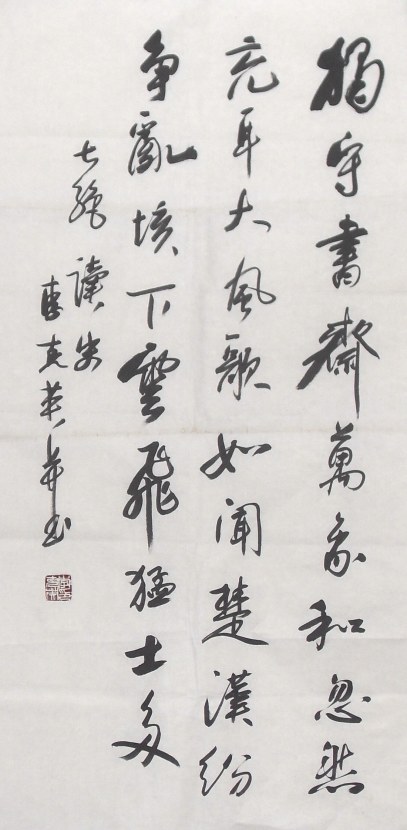 獨守書齋萬象和忽然
充耳大風歌如聞楚漢紛
爭亂垓下雲飛猛士多
七絕讀史
李克英并書